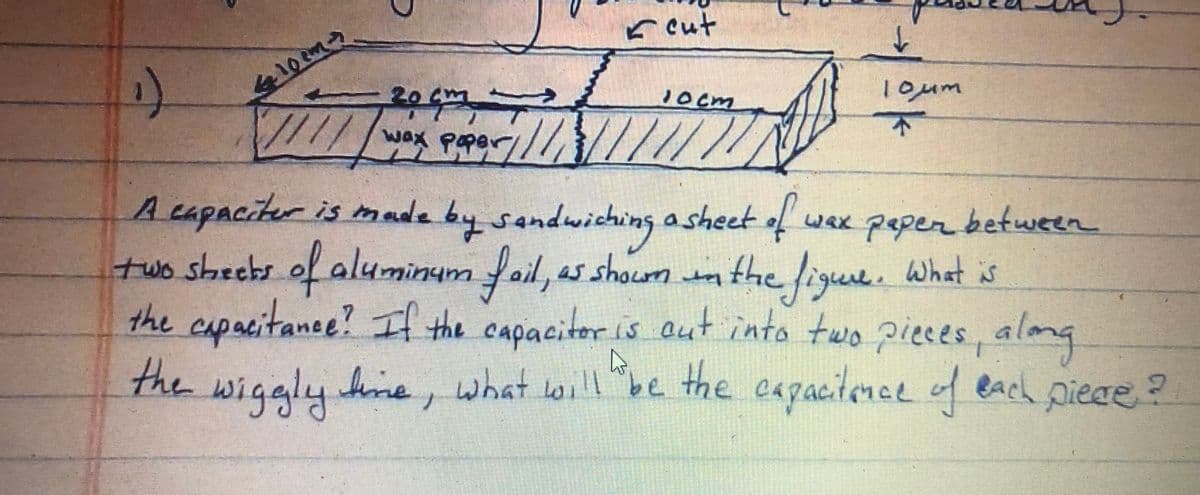 cut
1) 10cm
20cm 10cm 10µm
wax paper
A capaciter is made by sandwiching a sheet of wax paper between
two sheets of aluminum foil, as shown in the figure. What is
the capacitance? If the capacitor is cut into two pieces, along
the wiggly line, what will be the capacitance of each piece?